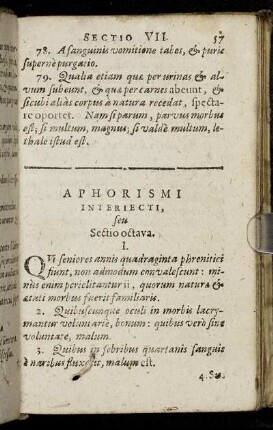 SECTIO VII. 57
78. A sanguinis vomitione tabes, & puris
supernè purgatio.
79. Qualia etiam quæ per urinas & al-
vum subeunt, & quæ per carnes abeunt, &
sicubi aliàs corpus à natura recedat, specta-
re oportet. Nam si parum, parvus morbus
est; si multum, magnus; si valdè multum, le-
thale istud est.
APHORISMI
INTERIECTI,
seu
Sectio octava.
I.
QUi seniores annis quadraginta phrenitici
fiunt, non admodum convalescunt: mi-
nùs enim periclitantur ii, quorum naturæ &
ætati morbus fuerit familiaris.
2. Quibuscunque oculi in morbis lacry-
mantur voluntariè, bonum: quibus verò sine
voluntate, malum.
3. Quibus in febribus quartanis sanguis
è naribus fluxerit, malum est.